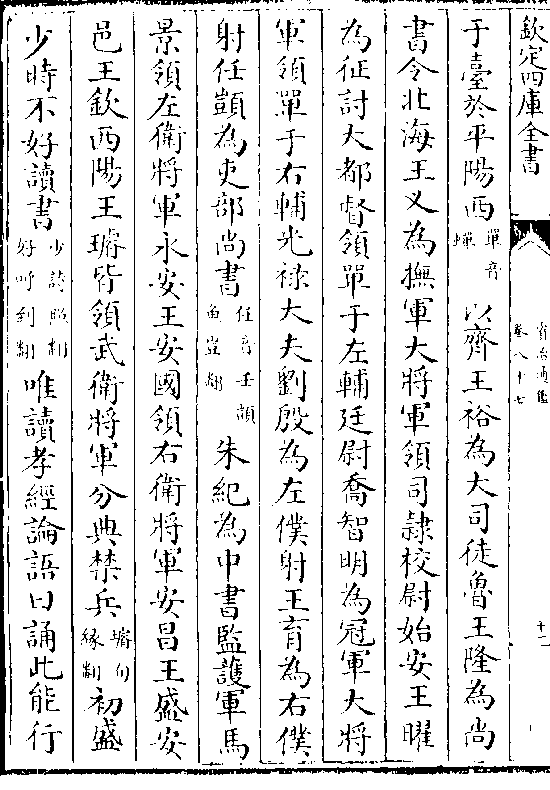 欽定四庫全書
資治通鑑
卷八十七
十一
于臺於平陽西單音蟬以齊王裕為大司徒魯王隆為尚
書令北海王乂為撫軍大將軍領司隸校尉始安王曜
為征討大都督領單于左輔廷尉喬智明為冠軍大將
軍領單于右輔光祿大夫劉殷為左僕射王育為右僕
射任顗為吏部尚書任音壬顗魚豈翻朱紀為中書監護軍馬
景領左衛將軍永安王安國領右衛將軍安昌王盛安
邑王欽西陽王璿皆領武衛將軍分典禁兵璿旬緣翻初盛
少時不好讀書少詩照翻好呼到翻唯讀孝經論語曰誦此能行